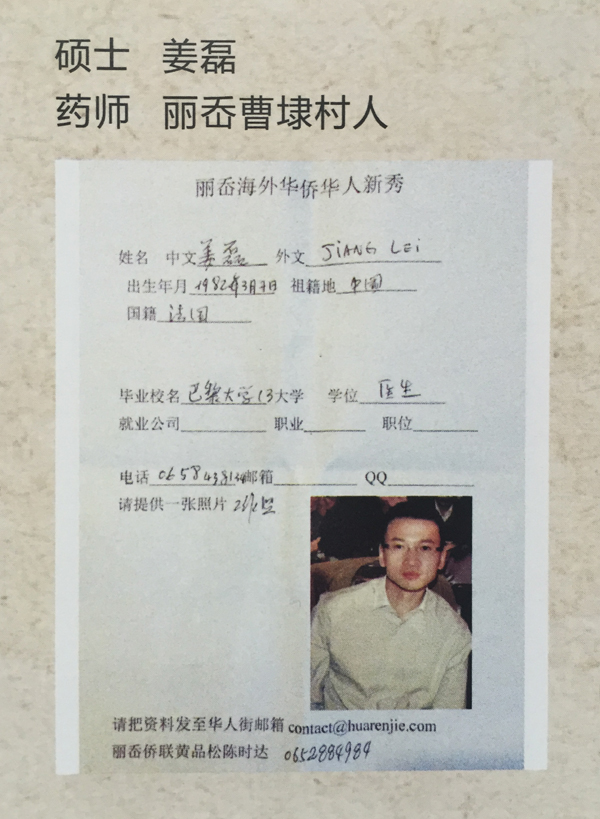 硕士 姜磊
药师 丽岙曹埭村人
丽岙海外华侨华人新秀
姓名 中文姜磊 外文 JIANG LEI
出生年月 1982年3月7日 祖籍地 中国
国籍 法国
毕业校名 巴黎大学13大学 学位 医生
就业公司 职业 职位
电话 0658438134邮箱 QQ
请提供一张照片
请把资料发至华人街邮箱 contact@huarenjie.com
丽岙侨联黄品松陈时达 0652884984